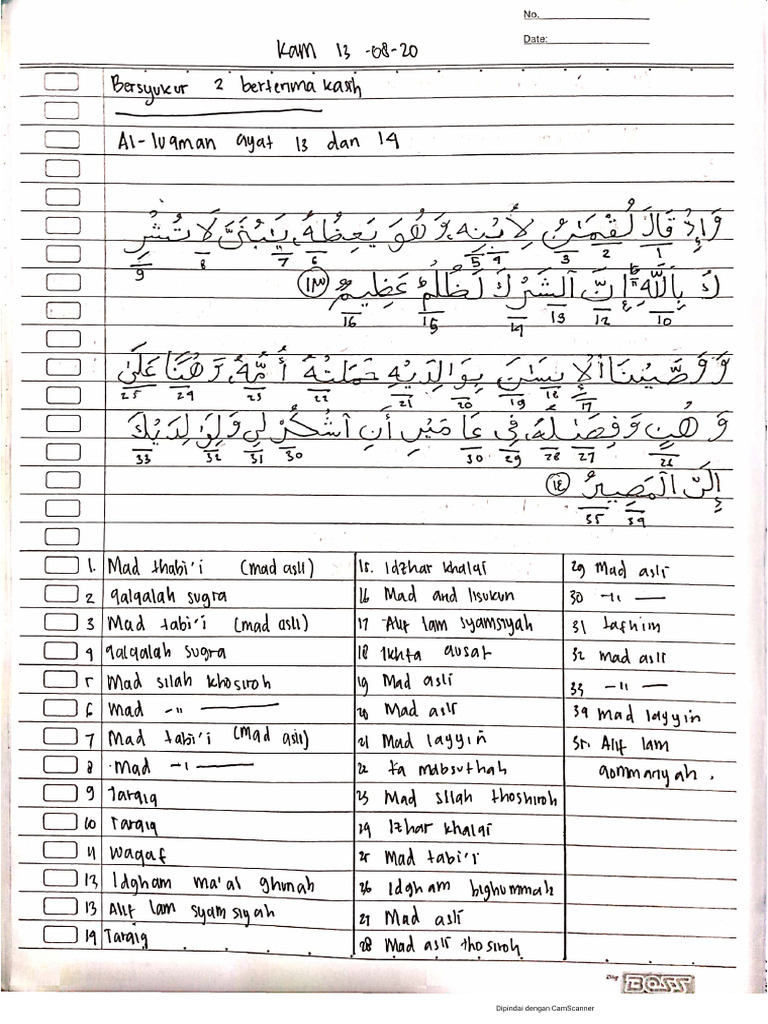 No.
Date:
Kam 13 -08-20
Bersyukur 2 berterima kasih
Al-luqman ayat 13 dan 14
وَإِذْ قَالَ لُقْمَٰنُ لِٱبْنِهِۦ وَهُوَ يَعِظُهُۥ يَٰبُنَىَّ لَا تُشْرِ
1 2 3 4 5 6 7 8 9
كْ بِٱللَّهِ ۖ إِنَّ ٱلشِّرْكَ لَظُلْمٌ عَظِيمٌ ١٣
10 11 12 13 14 15 16
وَوَصَّيْنَا ٱلْإِنسَٰنَ بِوَٰلِدَيْهِ حَمَلَتْهُ أُمُّهُۥ وَهْنًا عَلَىٰ
17 18 19 20 21 22 23 24 25
وَهْنٍ وَفِصَٰلُهُۥ فِى عَامَيْنِ أَنِ ٱشْكُرْ لِى وَلِوَٰلِدَيْكَ
26 27 28 29 30 30 31 32 33
إِلَىَّ ٱلْمَصِيرُ ١٤
34 35
1. Mad thabi'i (mad asli)
2 qalqalah sugra
3 Mad tabi'i (mad asli)
4 qalqalah sugra
5 Mad silah khosiroh
6 Mad -"-
7 Mad tabi'i (Mad asli)
8 Mad -"-
9 Tarqiq
10 Tarqiq
11 Waqaf
12 Idgham ma'al ghunah
13 Alif lam syamsiyah
14 Tarqiq
15. Idzhar khalqi
16 Mad arid lisukun
17 Alif lam syamsiyah
18 Ikhfa ausat
19 Mad asli
20 Mad asli
21 Mad layyin
22 ta mabsuthah
23 Mad silah thoshiroh
24 Izhar khalqi
25 Mad tabi'i
26 Idgham bighummah
27 Mad asli
28 Mad asli thosiroh
29 Mad asli
30 -"-
31 tafhim
32 mad asli
33 -"-
34 Mad layyin
35. Alif lam
qommariyah.
BOSS
Dipindai dengan CamScanner